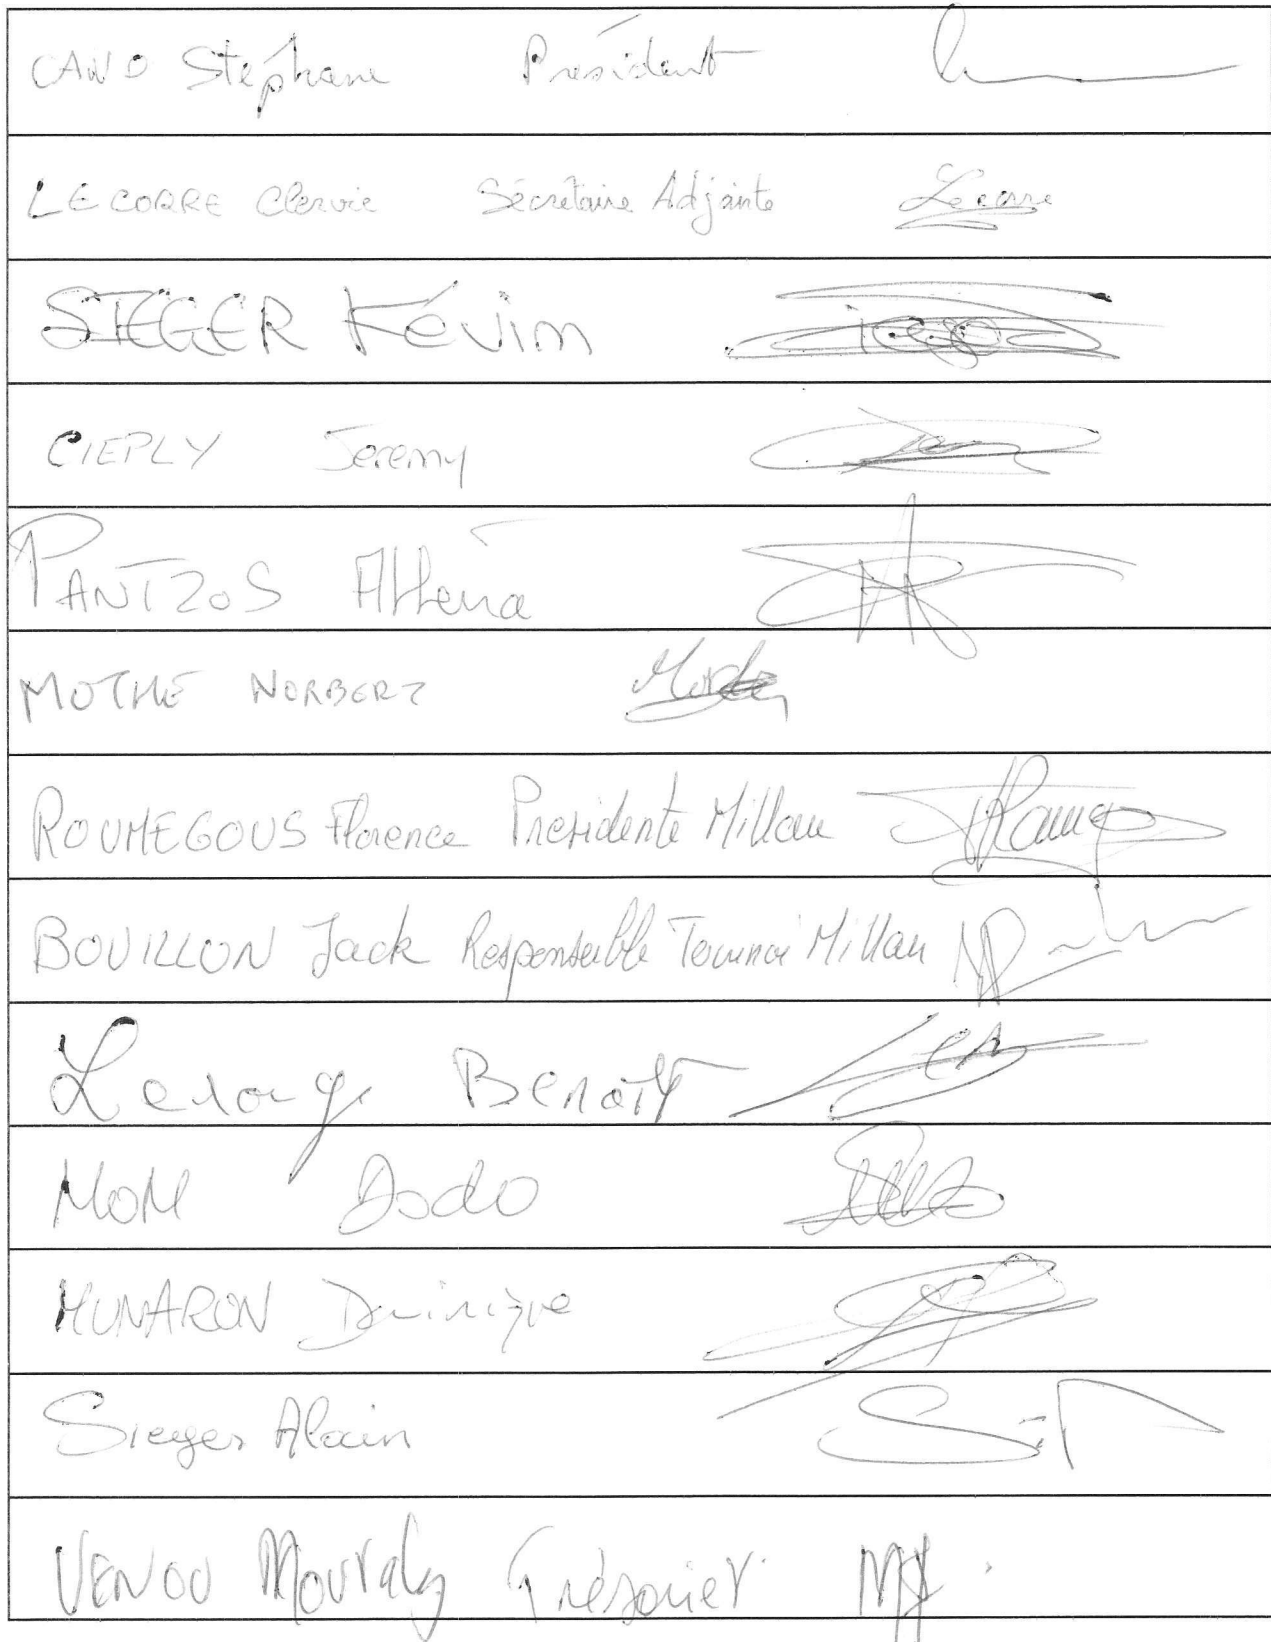 CANO Stéphane Président
LE CORRE Clervie Sécrétaire Adjointe Lecorre
SIEGER Kévin
CIEPLY Jeremy
PANTZOS Athena
MOTHE NORBERT
ROUMEGOUS Florence Presidente Millau
BOUILLON Jack Responsable Tournoi Millau
Lerouge Benoit
MOM Dodo
MUNARON Dominique
Sieger Alain
VENOU Mouraly Trésorier